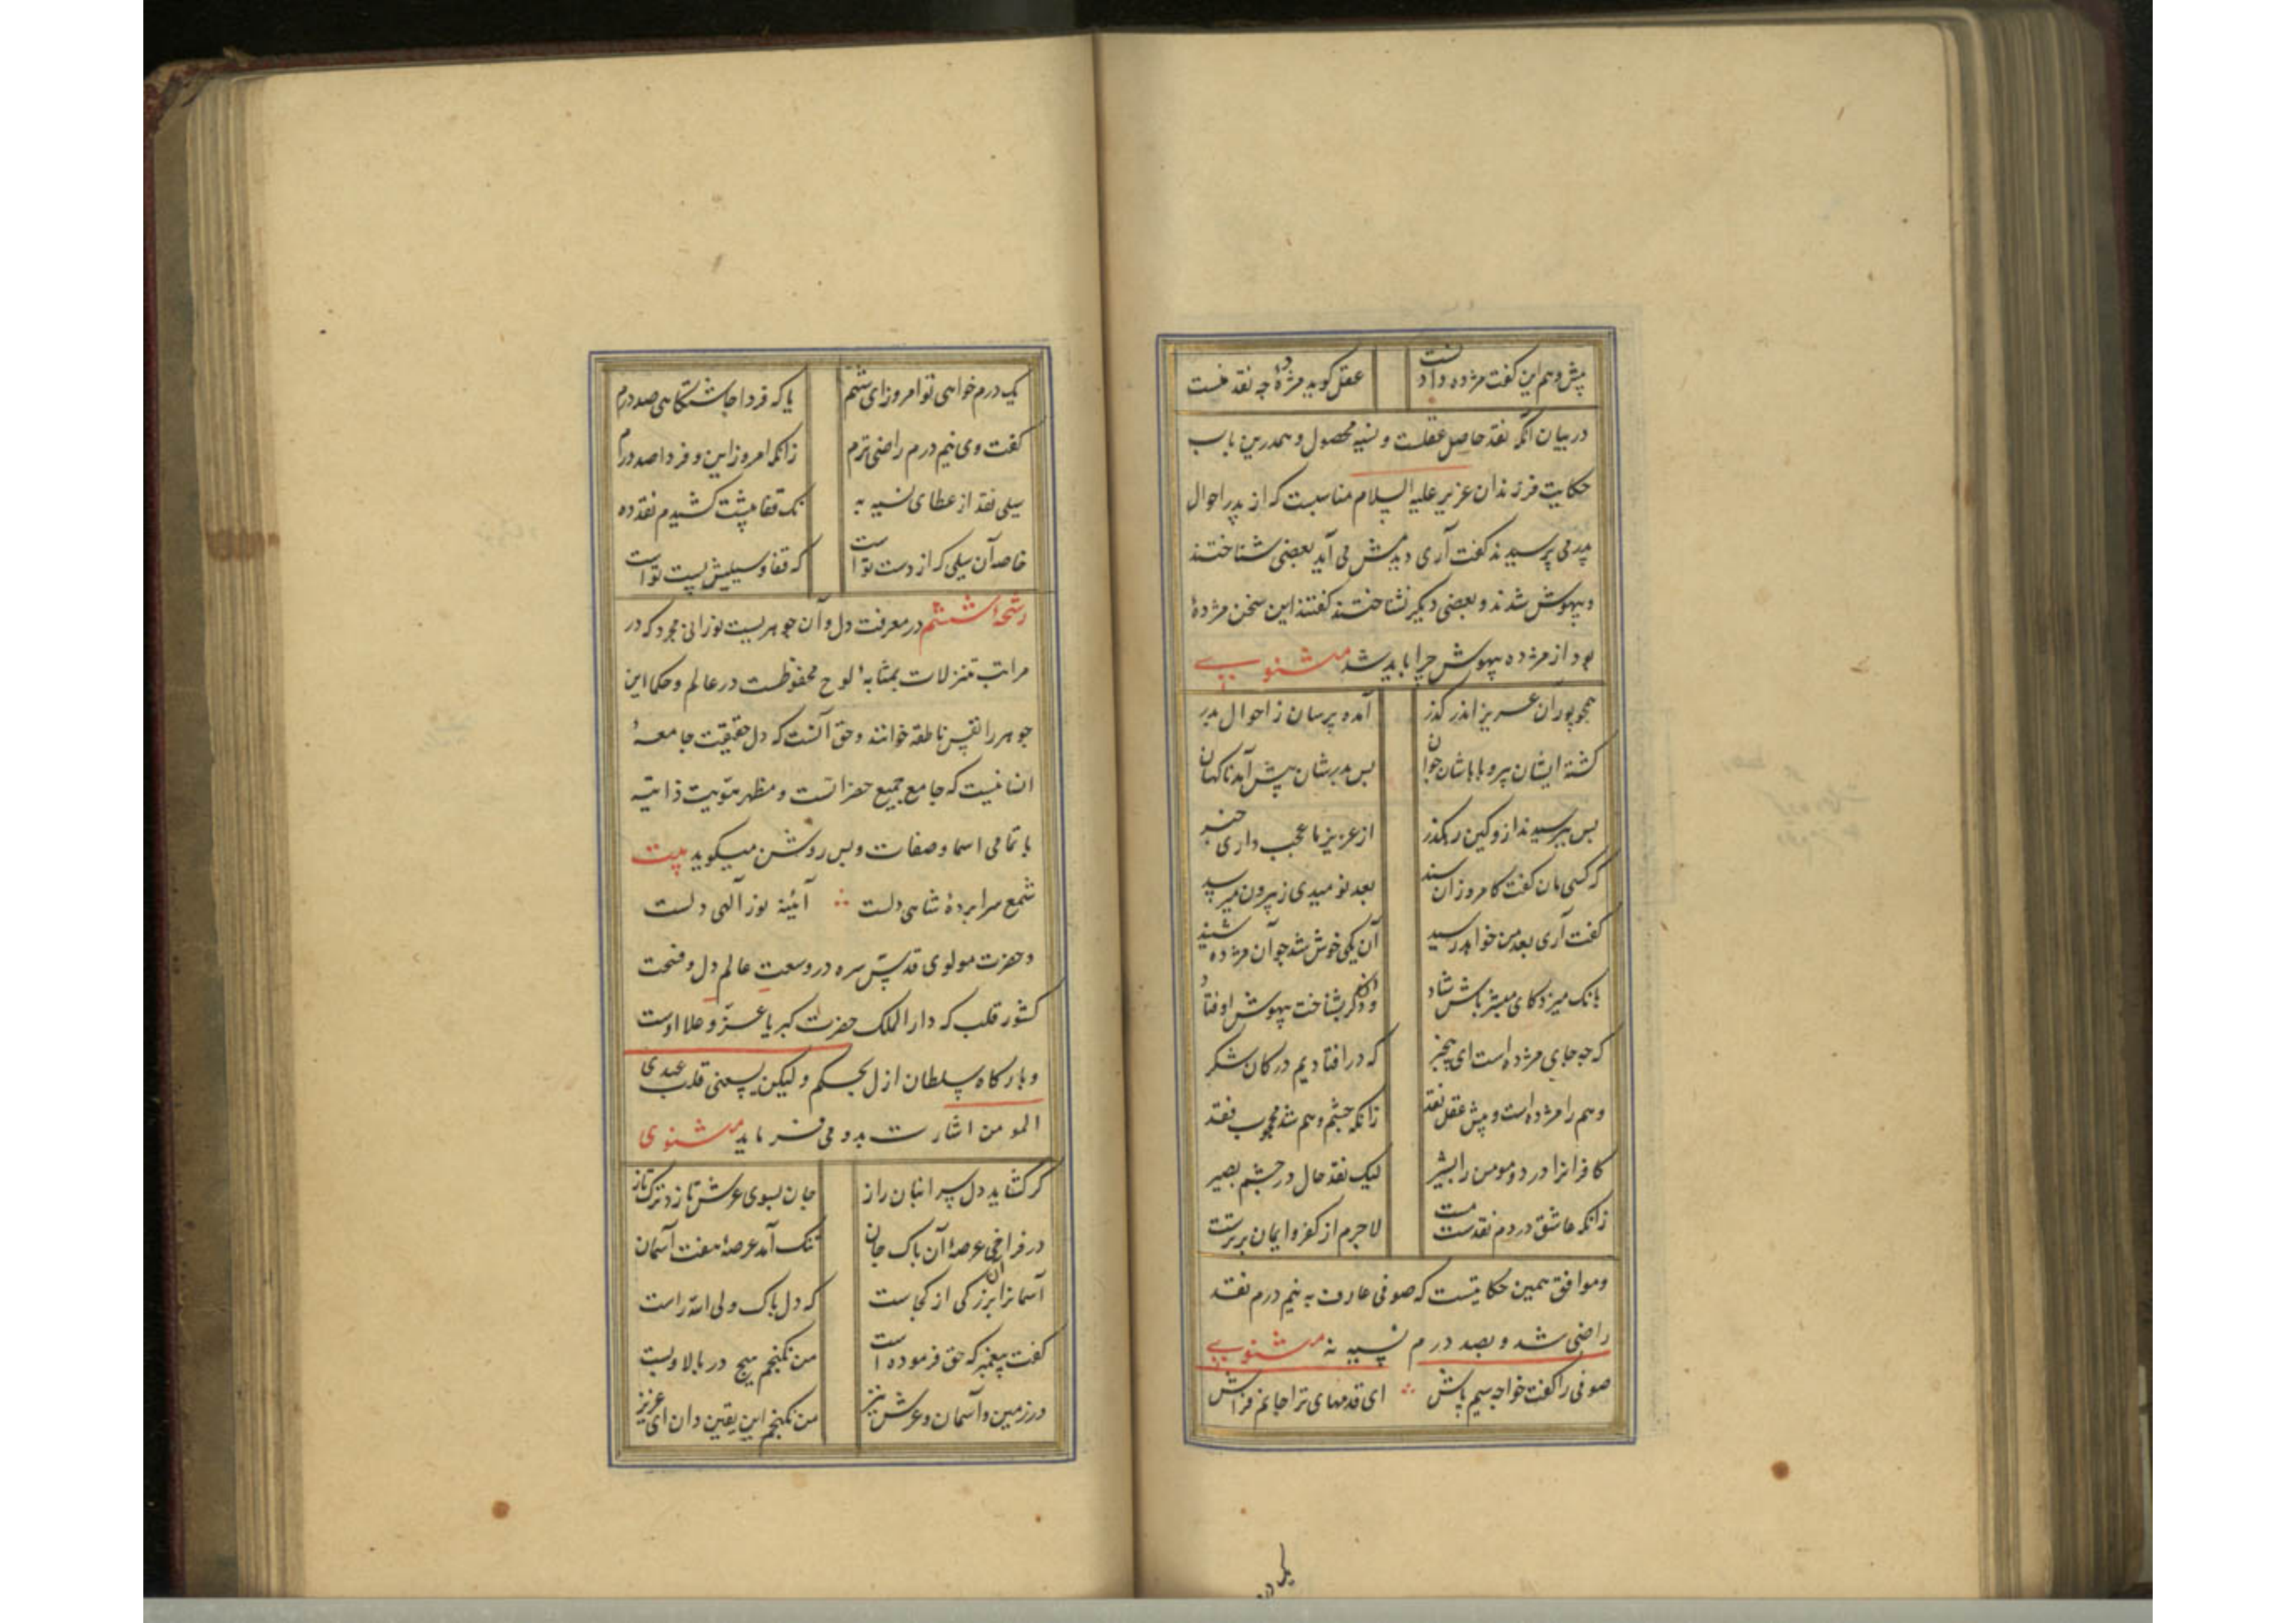 پیش وهم این گفت مژده دادنست عقل گوید مژدهٔ چه نقد منست
در بیان آنکه نقد حاصل عقلست و نسیه محصول و همدرین باب
حکایت فرزندان عزیر علیه السلام مناسبت که از پدر احوال
پدر می پرسیدند گفت آری دیدمش می آید بعضی شناختند
و بیهوش شدند و بعضی دیگر نشناختند گفتند این سخن مژدهٔ
بود از مژده بیهوش چرا باید شد مثنوی
همچو پوران عزیز اندر گذر آمده پرسان ز احوال پدر
گشته ایشان پیر و باباشان جوان پس پدرشان پیش آمد ناگهان
پس بپرسیدند ازو کین رهگذر از عزیز ما عجب داری خبر
که کسی مان گفت کامروز آن سند بعد نومیدی ز بیرون میرسد
گفت آری بعد من خواهد رسید آن یکی خوش شد چو آن مژده شنید
بانک میزد کای مبشر باش شاد وان دگر بشناخت بیهوش اوفتاد
که چه جای مژده است ای بیخبر که در افتادیم در کان شکر
وهم را مژده است و پیش عقل نقد زانکه چشم وهم شد محجوب فقد
کافرانرا درد و مومن را بشیر لیک نقد حال در چشم بصیر
زانکه عاشق در دم نقدست مست لاجرم از کفر و ایمان برترست
و موافق همین حکایتست که صوفی عارف به نیم درم نقد
راضی شد و بصد درم نسیه نه مثنوی
صوفی را گفت خواجه سیم پاش ای قدمهای ترا جانم فراش
یک درم خواهی تو امروز ای شهم یا که فردا چاشتگاهی صد درم
گفت وی نیم درم راضی ترم زانکه امروز این و فردا صد درم
سیلی نقد از عطای نسیه به نک قفا پیشت کشیدم نقد ده
خاصه آن سیلی که از دست تو است که قفا و سیلیش پست تو است
رشحهٔ ششم در معرفت دل و آن جوهریست نورانی مجرد که در
مراتب تنزلات بمثابهٔ لوح محفوظست در عالم و حکما این
جوهر را نفس ناطقه خوانند و حق آنست که دل حقیقت جامعهٔ
انسانیست که جامع جمیع حضراتست و مظهر هویت ذاتیه
با تمامی اسما و صفات و بس روشن میگوید بیت
شمع سراپردهٔ شاهی دلست آئینه نور آلهی دلست
و حضرت مولوی قدس سره در وسعت عالم دل و فسحت
کشور قلب که دار الملک حضرت کبریا عز و علا اوست
و بارگاه سلطان ازل بحکم ولیکن یسعنی قلب عبدی
المومن اشارت بدو می فرماید مثنوی
گر گشاید دل سر انبان راز جان بسوی عرش تازد ترکتاز
در فراخی عرصهٔ آن پاک جان تنک آمد عرصهٔ هفت آسمان
آسمانرا آن بزرگی از کجاست که دل پاک ولی الله راست
گفت پیغمبر که حق فرموده است من نگنجم هیچ در بالا و پست
در زمین و آسمان و عرش نیز من نگنجم این یقین دان ای عزیز